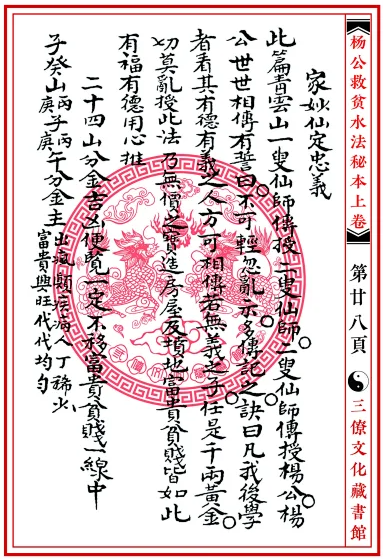 杨公救贫水法秘本上卷
第廿八頁
三僚文化藏書館
家妙仙定忠義
此篇青雲山一叟仙師傳授二叟仙師二叟仙師傳授楊公楊
公世世相傳有誓曰不可輕忽亂示多傳記之訣曰凡我後學
者看其有德有義之人方可相傳若無義之子任是千兩黃金
切莫亂授此法乃無價之寶造房屋及填地富貴貧賤皆如此
有福有德用心推
二十四山分金吉凶便覽一定不移富貴貧賤一線中
子癸山丙子丙午分金主出瘋顛疾病人丁稀少
庚子庚午分金主富貴興旺代代均勻